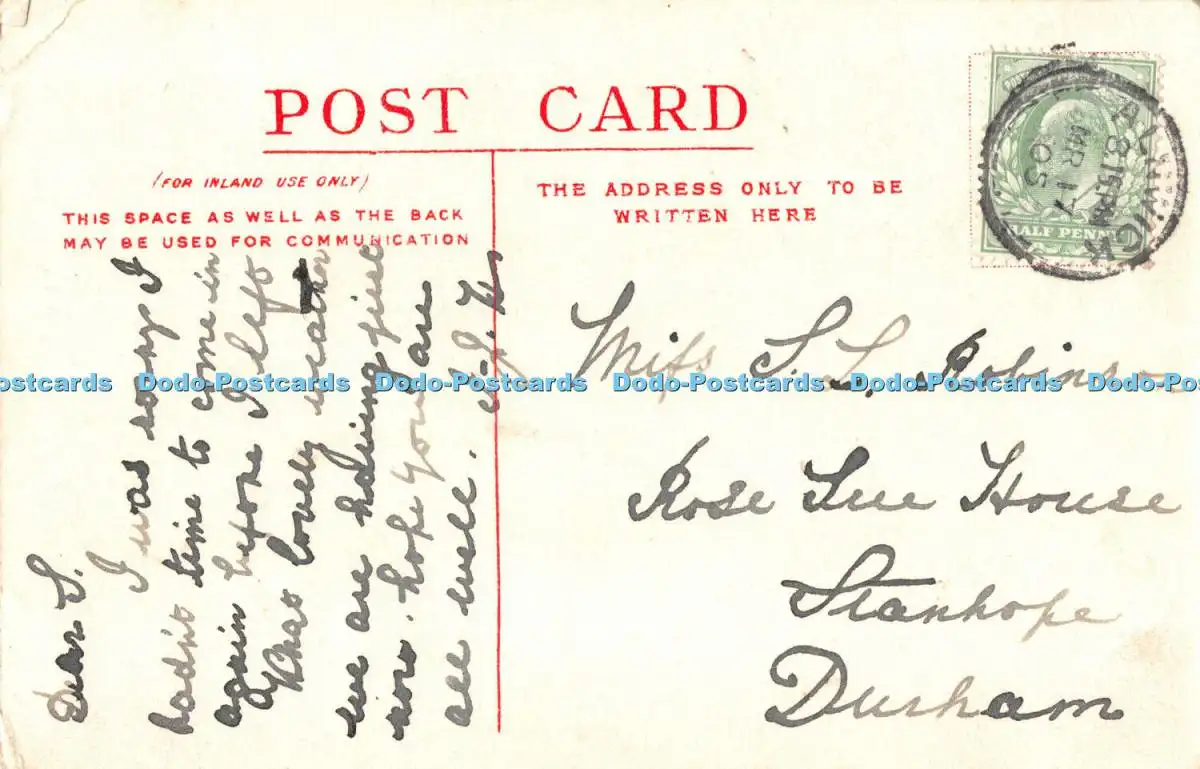 POST CARD
(FOR INLAND USE ONLY)
THIS SPACE AS WELL AS THE BACK
MAY BE USED FOR COMMUNICATION
THE ADDRESS ONLY TO BE
WRITTEN HERE
ALNWICK
8.15PM
MR 17
05
HALF PENNY
Dear S.
I was sorry I
hadn't time to come in
again before I left
What lovely weather
we are having just
now. hope you are
all well.
Miss S. L. Robinson
Rose House
Stanhope
Durham
Dodo-Postcards Dodo-Postcards Dodo-Postcards Dodo-Postcards Dodo-Postcards